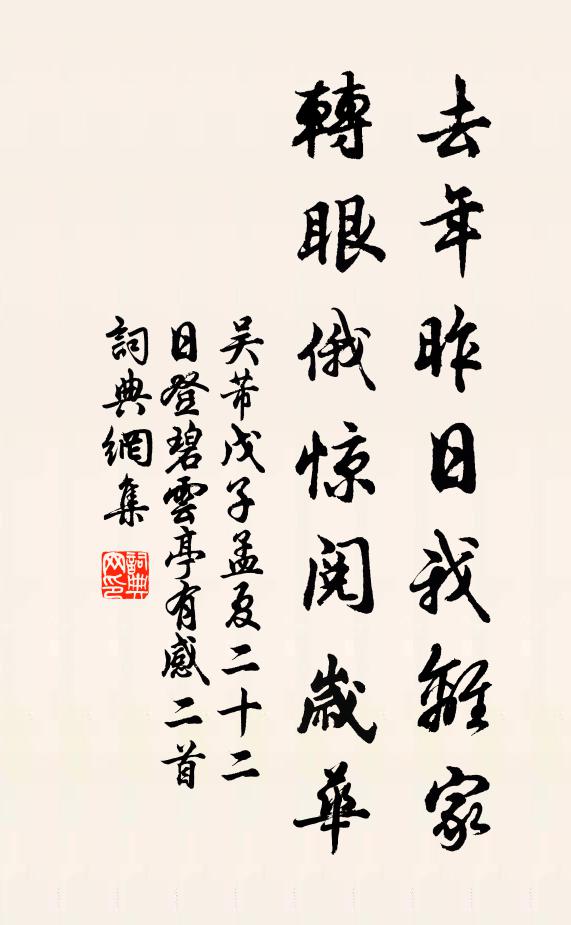 去年昨日我離家
轉眼俄惊閱歲華
吴芾戊子孟夏二十二
日登碧雲亭有感二首
詞典網集
詞典
网印